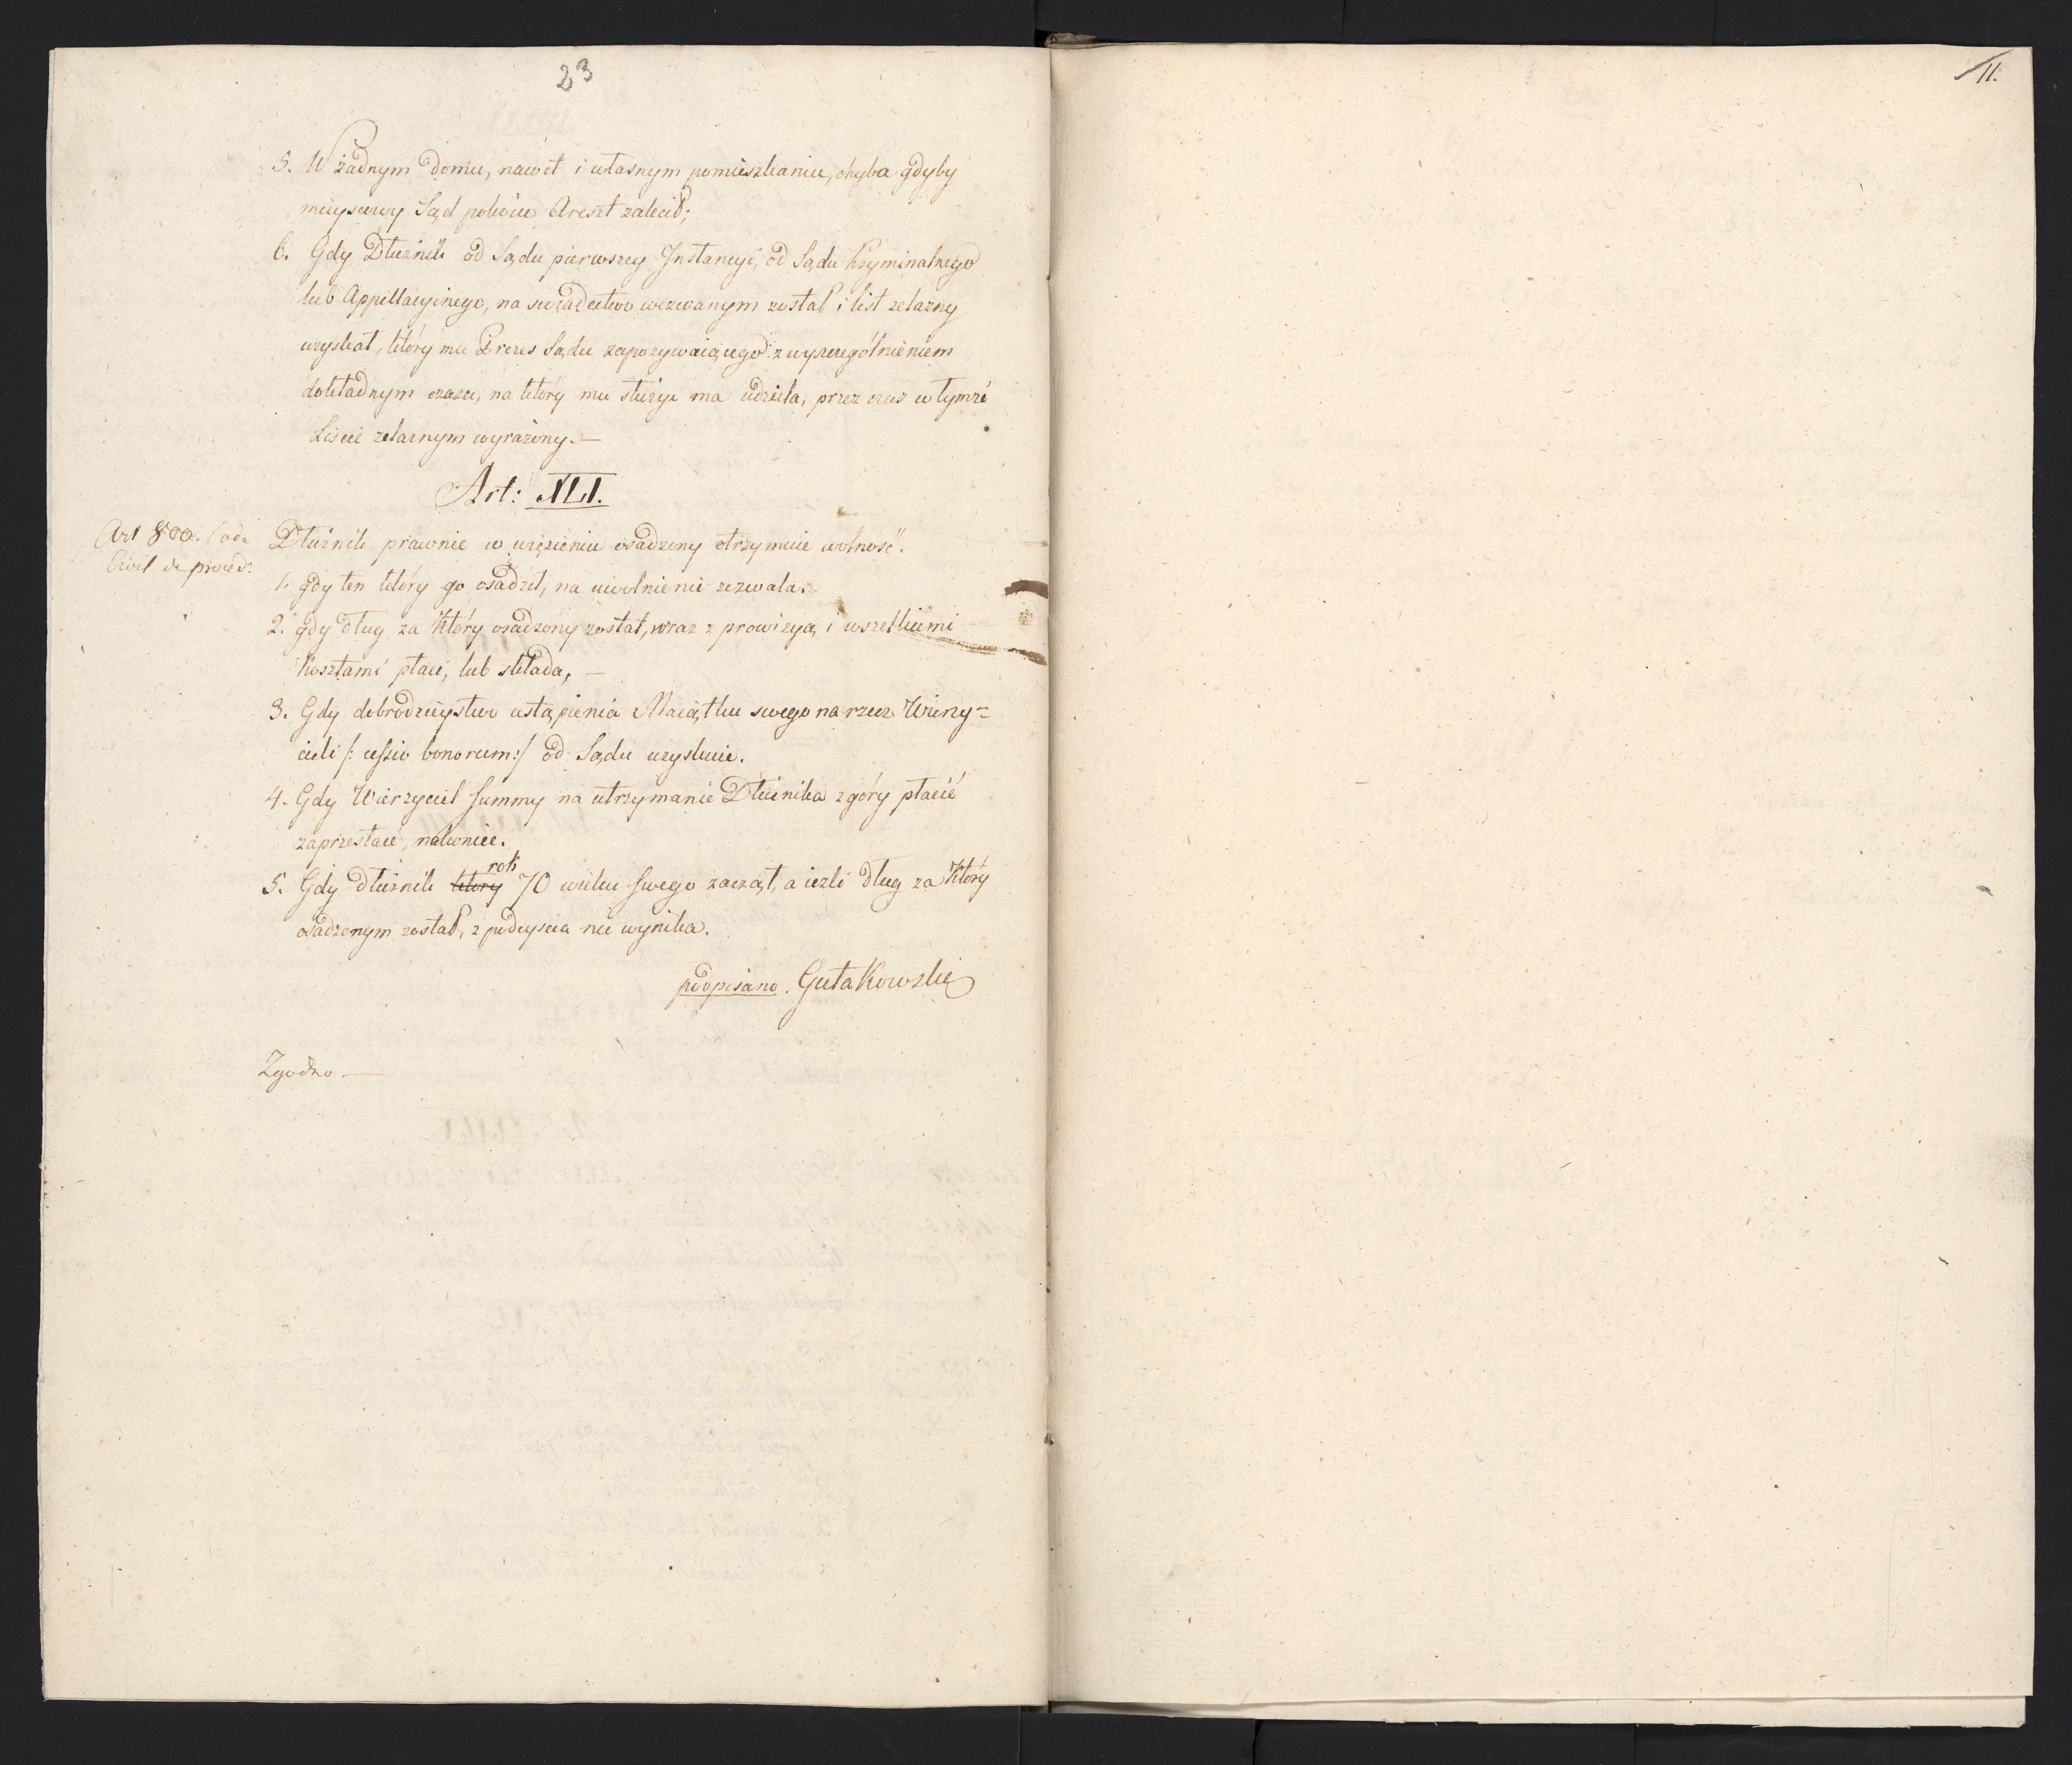 23
11.
5. W żadnym Domu, nawet i własnym pomieszkaniu, chyba gdyby
mieyscowy Sąd pokoiu Areszt zalecił;
6. Gdy Dłużnik od Sądu pierwszey Instancyi, od Sądu Kryminalnego
lub Appellacyinego, na swiadectwo wezwanym został i list zelazny
uzyskał, który mu Prezes Sądu zapozywaiącego z wyszczególnieniem
dokładnym czasu, na który mu służyć ma udziela, przez czas w tymże
Liscie zelaznym wyrażony. —
Art: XLI.
Art 800. Code
Civil de proced:
Dłużnik prawnie w więzieniu osadzony otrzymuie wolność.
1. gdy ten który go osadził, na uwolnienie zezwala.
2. gdy dług za Który osadzony został, wraz z prowizyą i wszelkiemi
Kosztami płaci, lub składa, —
3. Gdy dobrodzieystwo ustąpienia Maiątku swego na rzecz Wierzy=
cieli /: cessio bonorum:/ od Sądu uzyskuie.
4. Gdy Wierzyciel summy na utrzymanie Dłużnika z góry płacić
zaprzestaie, nakoniec.
rok
5. Gdy dłużnik który 70 wieku swego zaczął, a iezli dług za Który
osadzonym został, z podeyscia nie wynika.
podpisano. Gutakowski
Zgodno. —